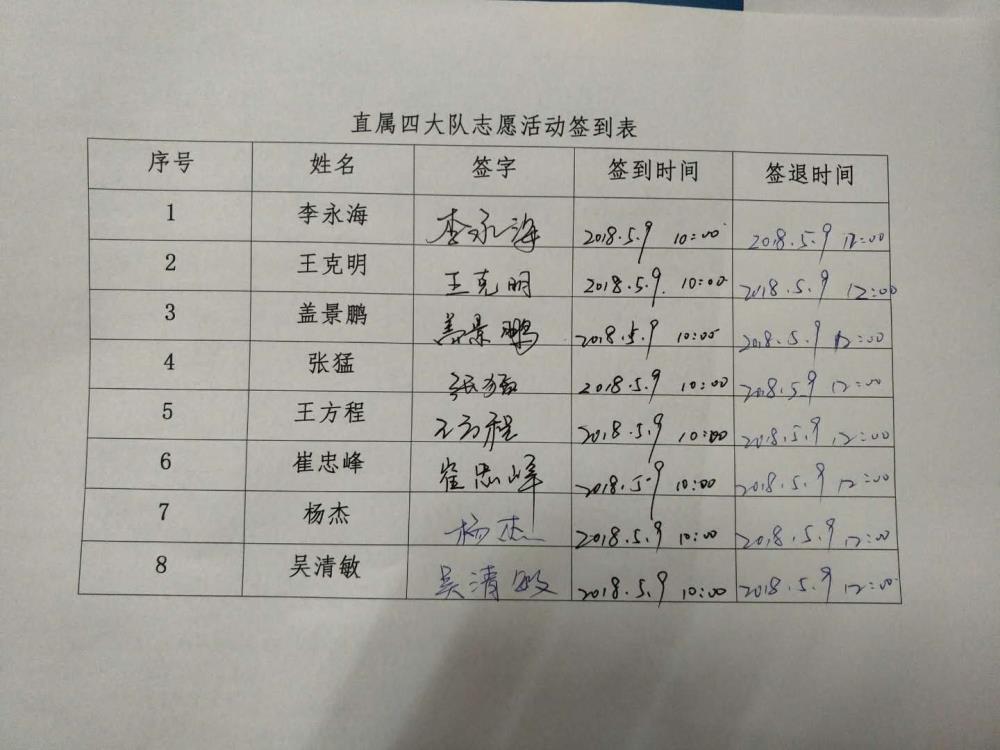 直属四大队志愿活动签到表
序号 姓名 签字 签到时间 签退时间
1 李永海 李永海 2018.5.9 10:00 2018.5.9 12:00
2 王克明 王克明 2018.5.9. 10:00 2018.5.9 12:00
3 盖景鹏 盖景鹏 2018.5.9 10:00 2018.5.9 12:00
4 张猛 张猛 2018.5.9 10:00 2018.5.9 12:00
5 王方程 王方程 2018.5.9 10:00 2018.5.9 12:00
6 崔忠峰 崔忠峰 2018.5.9 10:00 2018.5.9 12:00
7 杨杰 杨杰 2018.5.9 10:00 2018.5.9 12:00
8 吴清敏 吴清敏 2018.5.9 10:00 2018.5.9 12:00